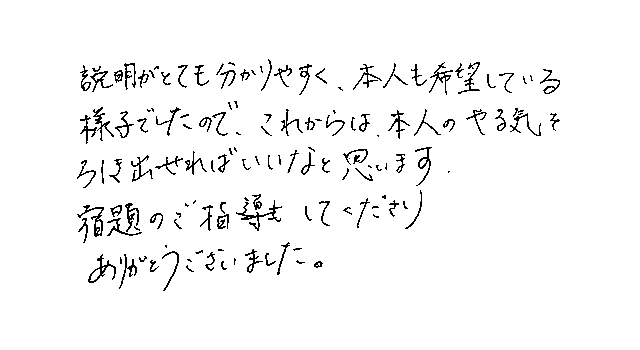 説明がとても分かりやすく、本人も希望している
様子でしたので、これからは、本人のやる気を
引き出せればいいなと思います.
宿題のご指導も してくださり
ありがとうございました。